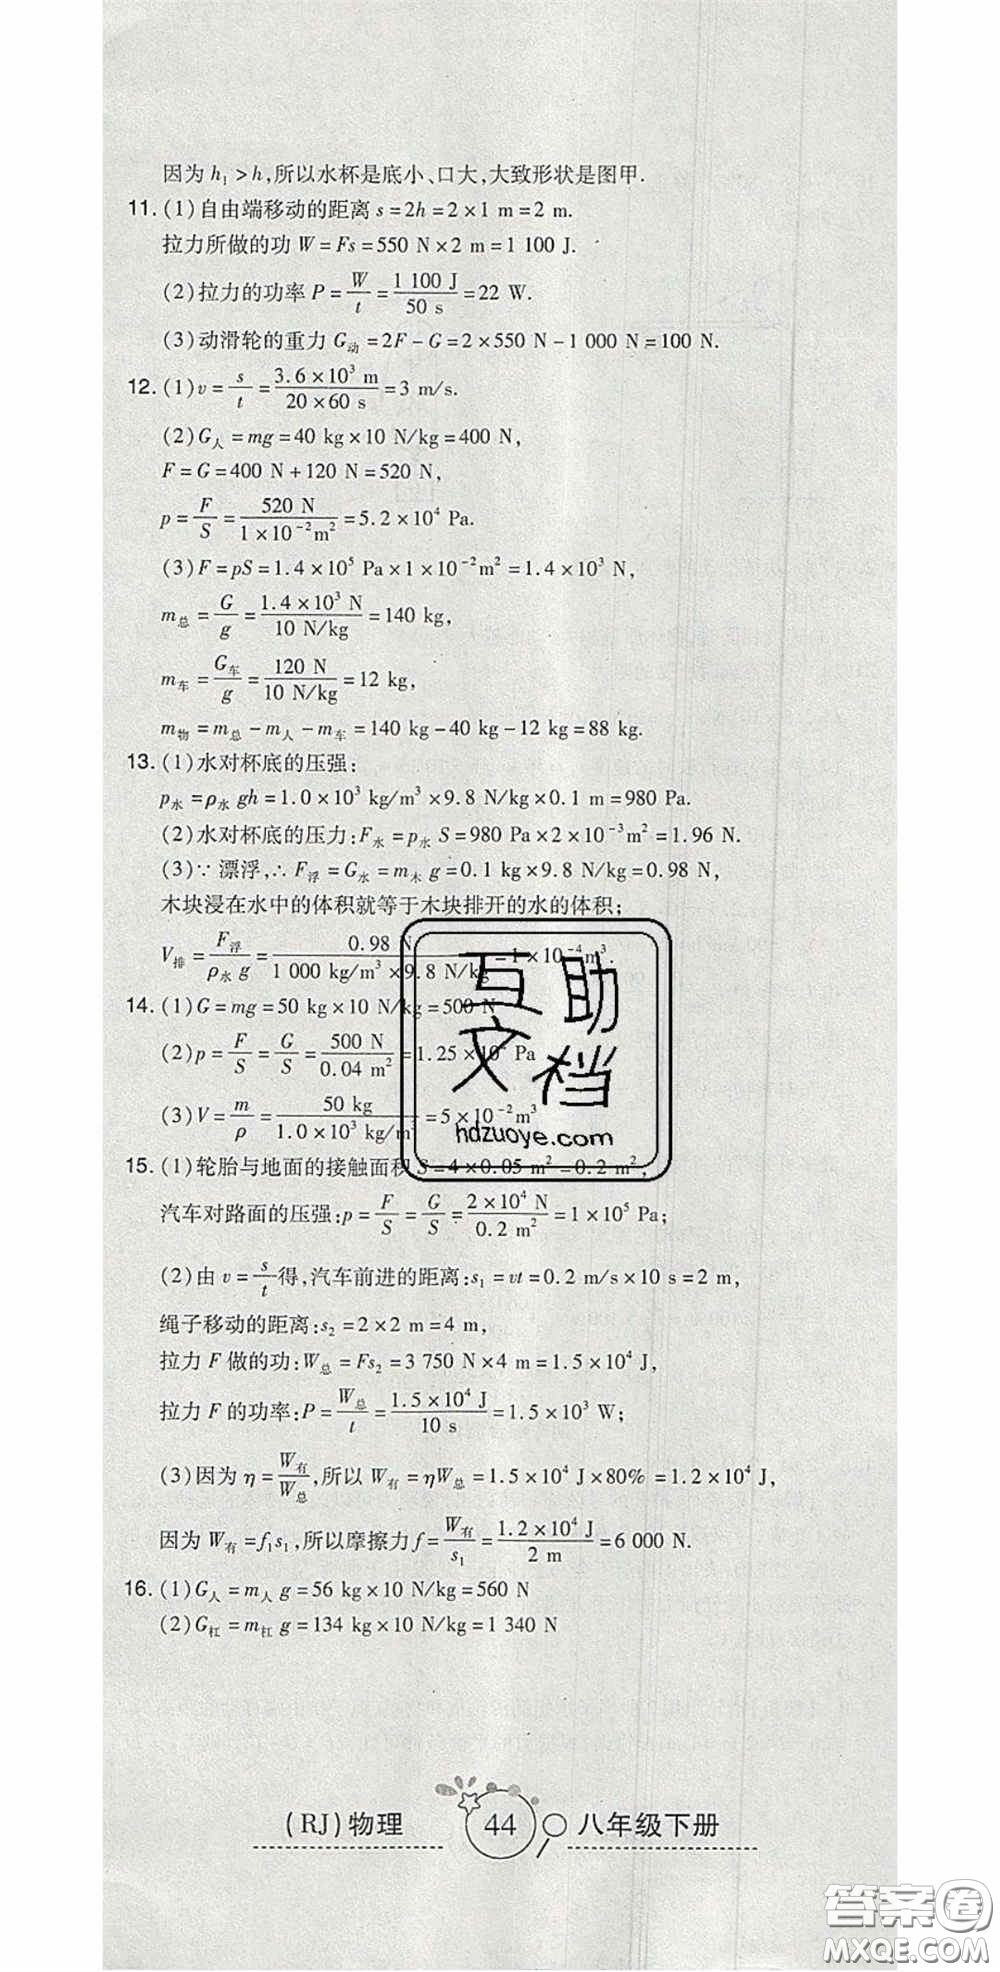 因为 h₁ >h,所以水杯是底小、口大,大致形状是图甲.
11. (1)自由端移动的距离 s=2h=2×1 m=2 m.
拉力所做的功 W=Fs=550 N×2 m=1 100 J.
(2)拉力的功率 P=W/t=1 100 J/50 s=22 W.
(3)动滑轮的重力 G动=2F-G=2×550 N-1 000 N=100 N.
12. (1)v=s/t=3.6×10³ m/20×60 s=3 m/s.
(2)G人=mg=40 kg×10 N/kg=400 N,
F=G=400 N+120 N=520 N,
p=F/S=520 N/1×10⁻²m²=5.2×10⁴ Pa.
(3)F=pS=1.4×10⁵ Pa×1×10⁻²m²=1.4×10³ N,
m总=G/g=1.4×10³ N/10 N/kg=140 kg,
m车=G车/g=120 N/10 N/kg=12 kg,
m物=m总-m人-m车=140 kg-40 kg-12 kg=88 kg.
13. (1)水对杯底的压强:
p水=ρ水 gh=1.0×10³ kg/m³×9.8 N/kg×0.1 m=980 Pa.
(2)水对杯底的压力:F水=p水 S=980 Pa×2×10⁻³m²=1.96 N.
(3)∵漂浮,∴F浮=G水=m木 g=0.1 kg×9.8 N/kg=0.98 N,
木块浸在水中的体积就等于木块排开的水的体积;
V排=F浮/ρ水 g=0.98 N/1 000 kg/m³×9.8 N/kg=1×10⁻⁴m³.
14. (1)G=mg=50 kg×10 N/kg=500 N
(2)p=F/S=G/S=500 N/0.04 m²=1.25×10 Pa
(3)V=m/ρ=50 kg/1.0×10³ kg/m³=5×10⁻²m³
15. (1)轮胎与地面的接触面积 S=4×0.05 m²=0.2 m²,
汽车对路面的压强:p=F/S=G/S=2×10⁴ N/0.2 m²=1×10⁵ Pa;
(2)由 v=s/t得,汽车前进的距离:s₁=vt=0.2 m/s×10 s=2 m,
绳子移动的距离:s₂=2×2 m=4 m,
拉力 F 做的功:W总=Fs₂=3 750 N×4 m=1.5×10⁴ J,
拉力 F 的功率:P=W总/t=1.5×10⁴ J/10 s=1.5×10³ W;
(3)因为 η=W有/W总,所以 W有=ηW总=1.5×10⁴ J×80%=1.2×10⁴ J,
因为 W有=f₁s₁,所以摩擦力 f=W有/s₁=1.2×10⁴ J/2 m=6 000 N.
16. (1)G人=m人 g=56 kg×10 N/kg=560 N
(2)G杠=m杠 g=134 kg×10 N/kg=1 340 N
互助
文档
hdzuoye.com
(RJ)物理 44 八年级下册
答案圈
MXQE.COM